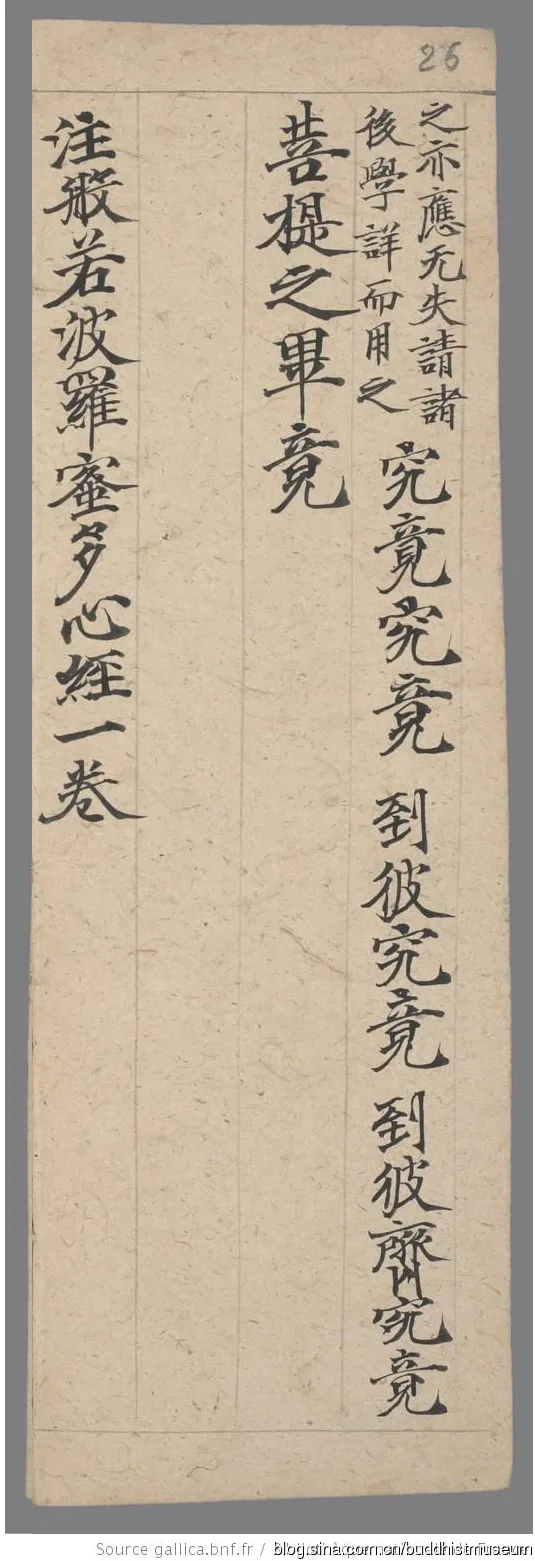 26
之亦應无失請諸
後學詳而用之
究竟究竟 到彼究竟 到彼齊究竟
菩提之畢竟
注般若波羅蜜多心經一卷
Source gallica.bnf.fr /
blog.sina.com.cn/buddhistmuseum